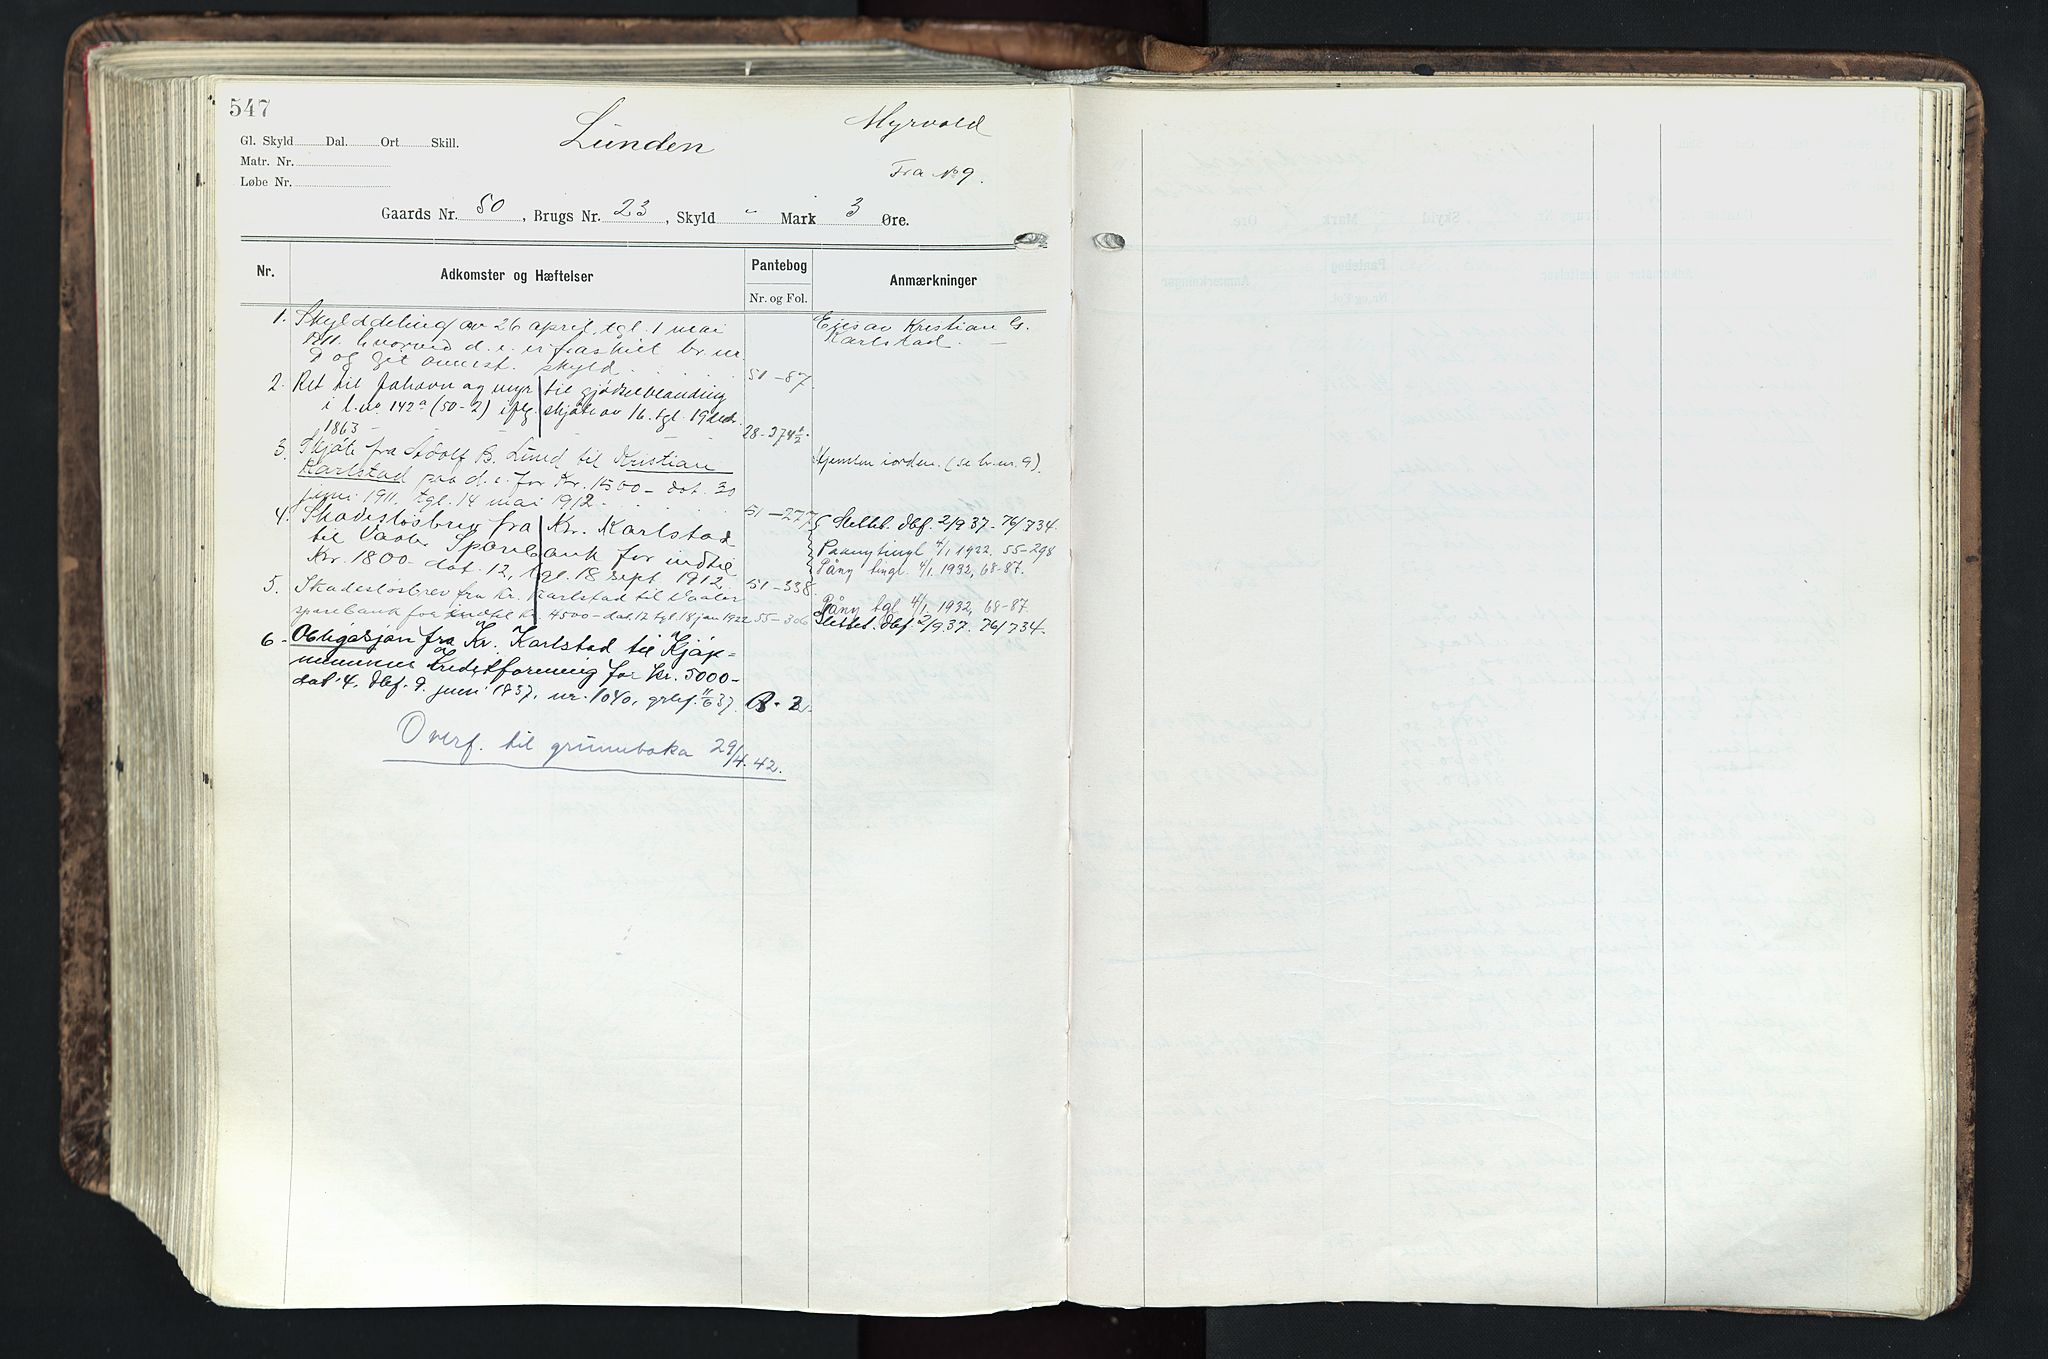 547
Lunden
Myrvold
Gl. Skyld Dal. Ort Skill.
Matr. Nr.
Løbe Nr.
Fra No 9.
Gaards Nr. 50, Brugs Nr. 23, Skyld " Mark 3 Øre.
Nr. Adkomster og Hæftelser Pantebog Anmærkninger
Nr. og Fol.
1. Skylddeling av 26 april, tgl. 1 mai Eies av Kristian G.
1911. hvorved d. e. er fraskilt br. nr. Karlstad.
9 og git anmst. skyld. 51-87
2. Ret til og myr til gjødselblanding
i l. no 142a (50-2) iflg. skjøte av 16. tgl. 19
1863 28-374½
3. Skjøte fra Adolf B. Lund til Kristian Hjemlen iorden. (se br. nr. 9).
Karlstad paa d. e. for Kr. 1500- dat. 30
juni 1911. tgl. 14 mai 1912. 51-277
4. Skadesløsbrev fra Kr. Karlstad Slettet. dbf. 2/9 37- 76/734.
til Vaaler Sparebank for indtil Paany tingl 4/1 1922. 55-298
Kr. 1800- dat. 12, tgl. 18 sept. 1912. 51-338 Påny tingl. 4/1. 1932, 68-87.
5. Skadesløsbrev fra Kr. Karlstad til Vaaler Påny tgl. 4/1. 1932, 68-87.
sparebank for indtil kr 4500- dat. 12 tgl. 18 jan 1922 55-306 Slettet. dbf. 2/9 37. 76/734.
6- Obligasjon fra Kr. Karlstad til Kjøp-
mennenes Kreditforening for kr. 5000-
dat. 4. dbf. 9. juni 1937. nr. 1040, 11/6 37.
Overf. til grunnboka 29/4. 42.